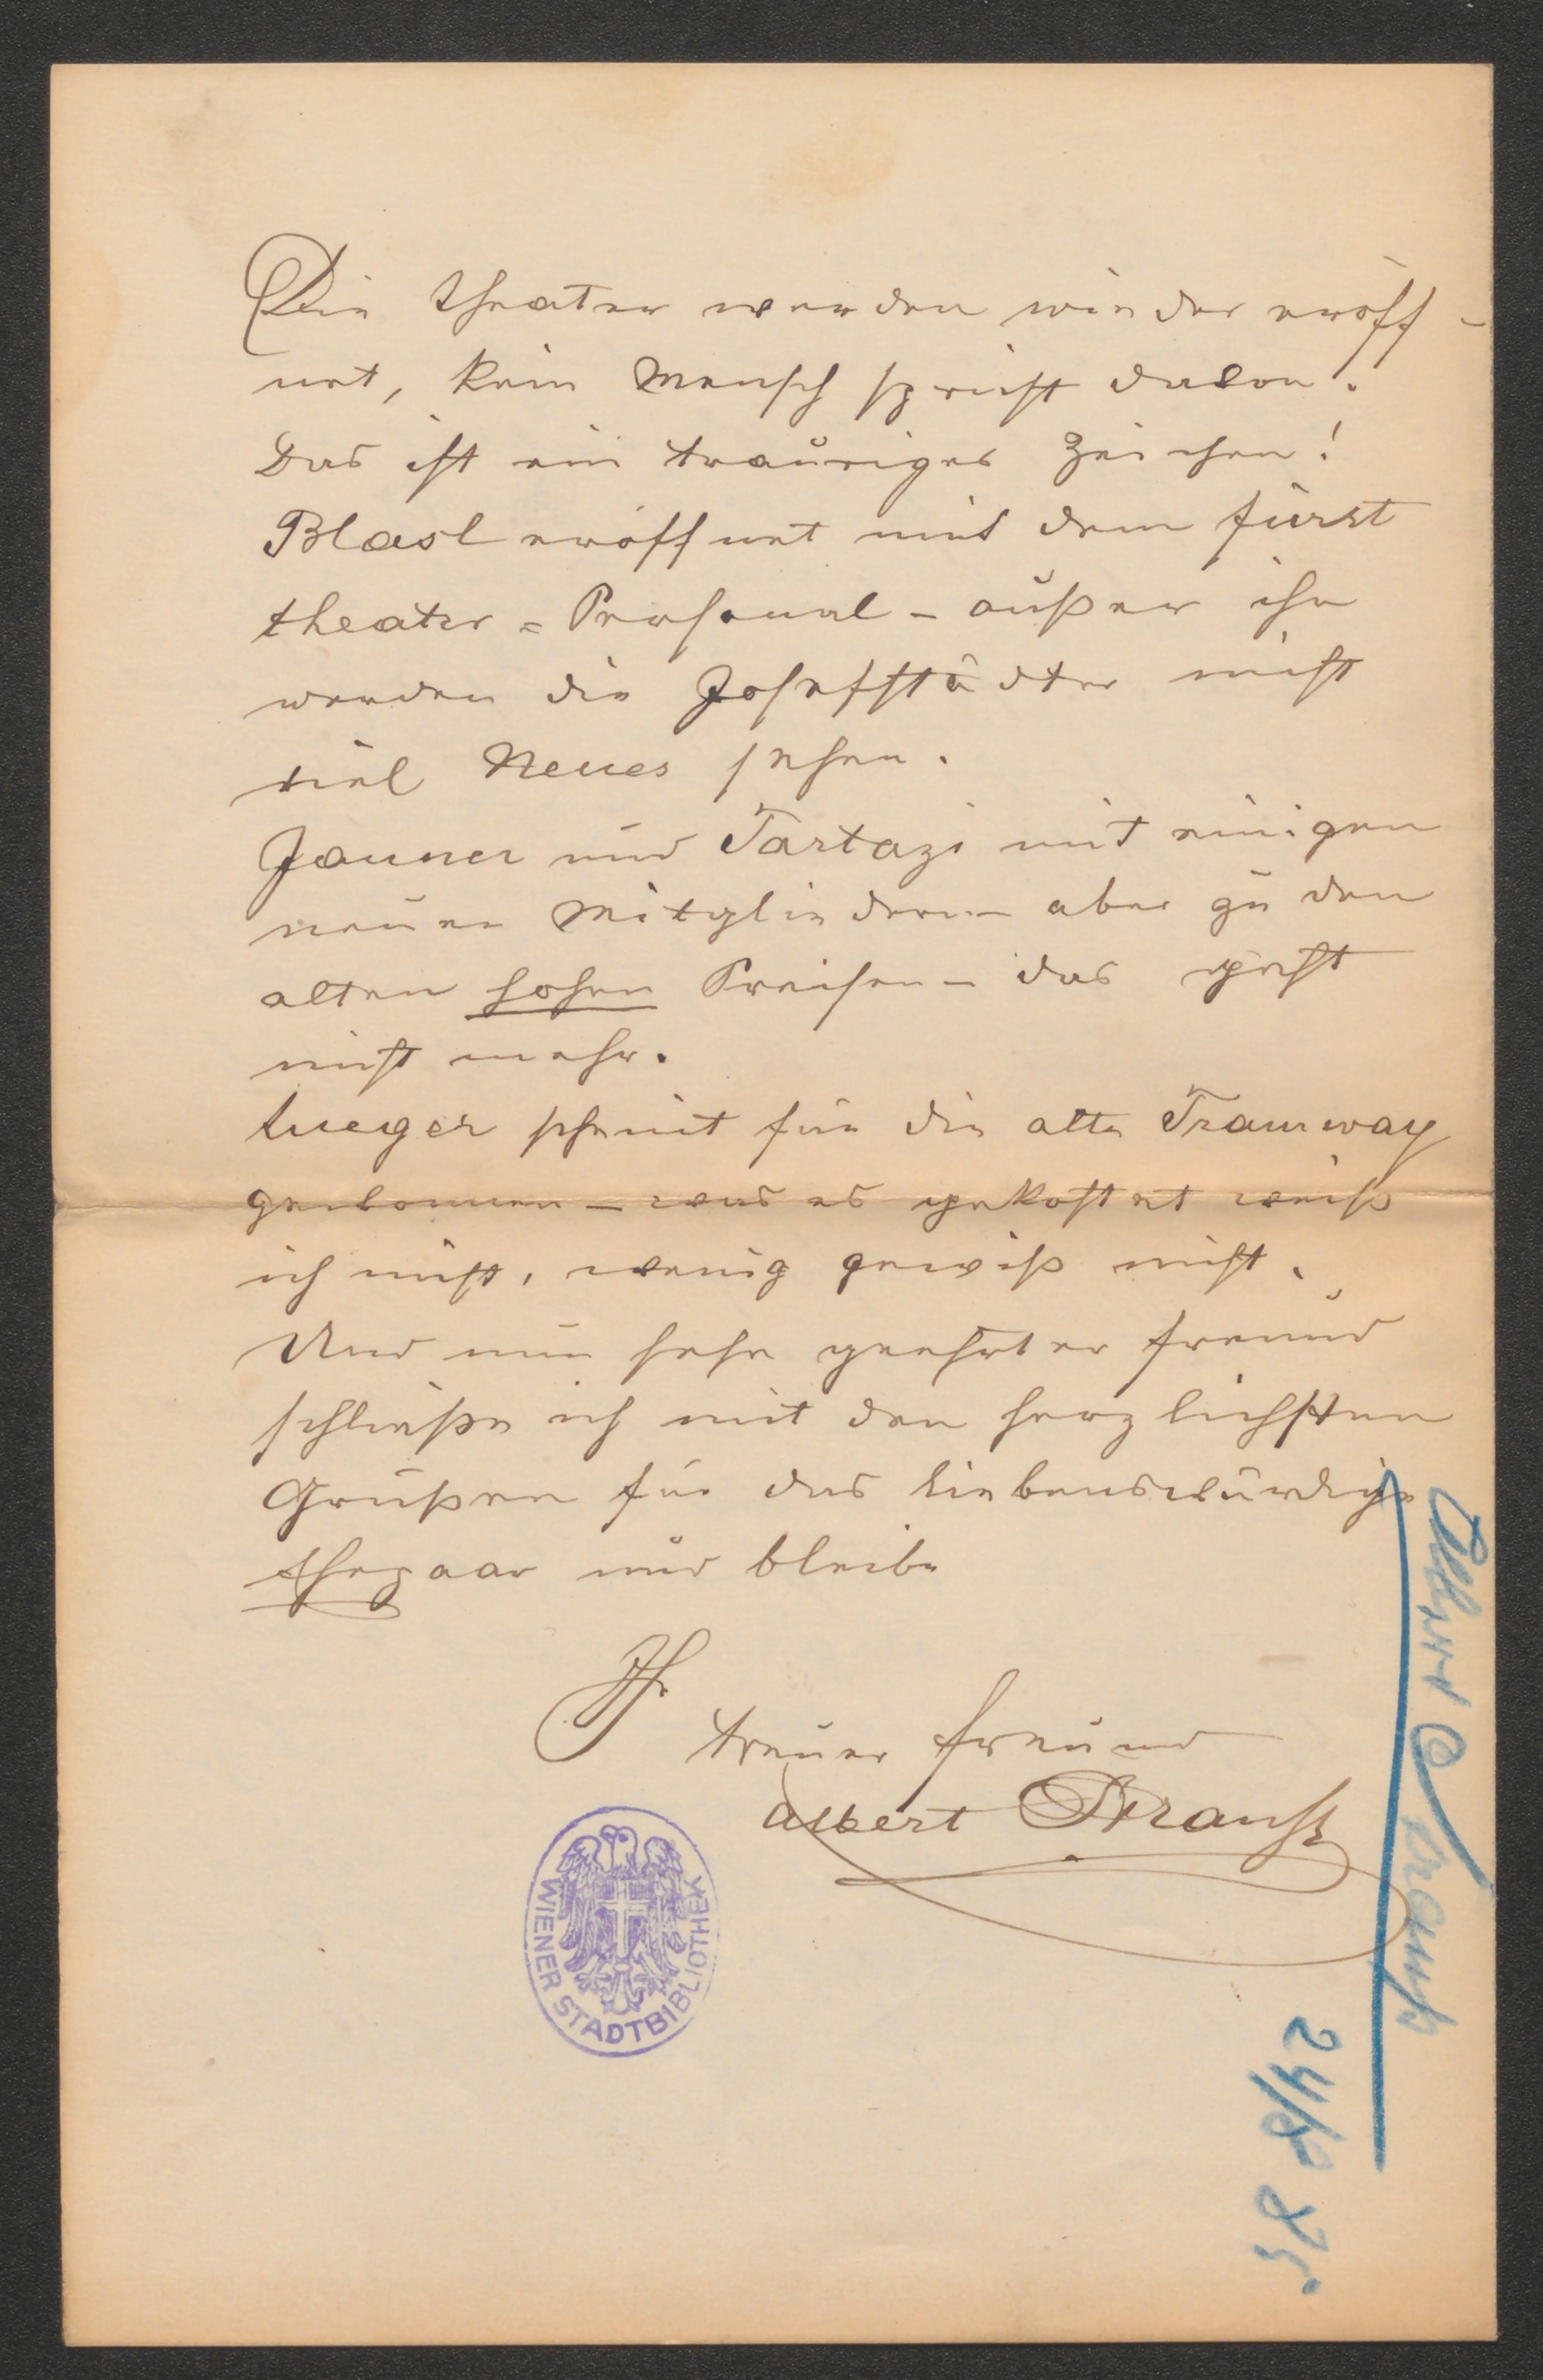 Die Theater werden wieder eröff-
net, kein Mensch spricht davon.
Das ist ein trauriges Zeichen!
Blasel eröffnet mit dem Fürst
theater = Personal – außer ihr
werden die Josefstädter nicht
viel Neues sehen.
Jauner und Tartazi mit einigen
neuen Mitgliedern – aber zu den
alten hohen Preisen – das geht
nicht mehr.
Lueger scheint für die alte Tramway
gewonnen – was es gekostet weiß
ich nicht, wenig gewiß nicht.
Und nun sehr geehrter Freund
schließe ich mit den herzlichsten
Grüßen für das liebenswürdige
Ehepaar und bleibe
Ihr
treuer Freund
Albert Strauß
WIENER STADTBIBLIOTHEK
Albert Strauß
24/8 85.